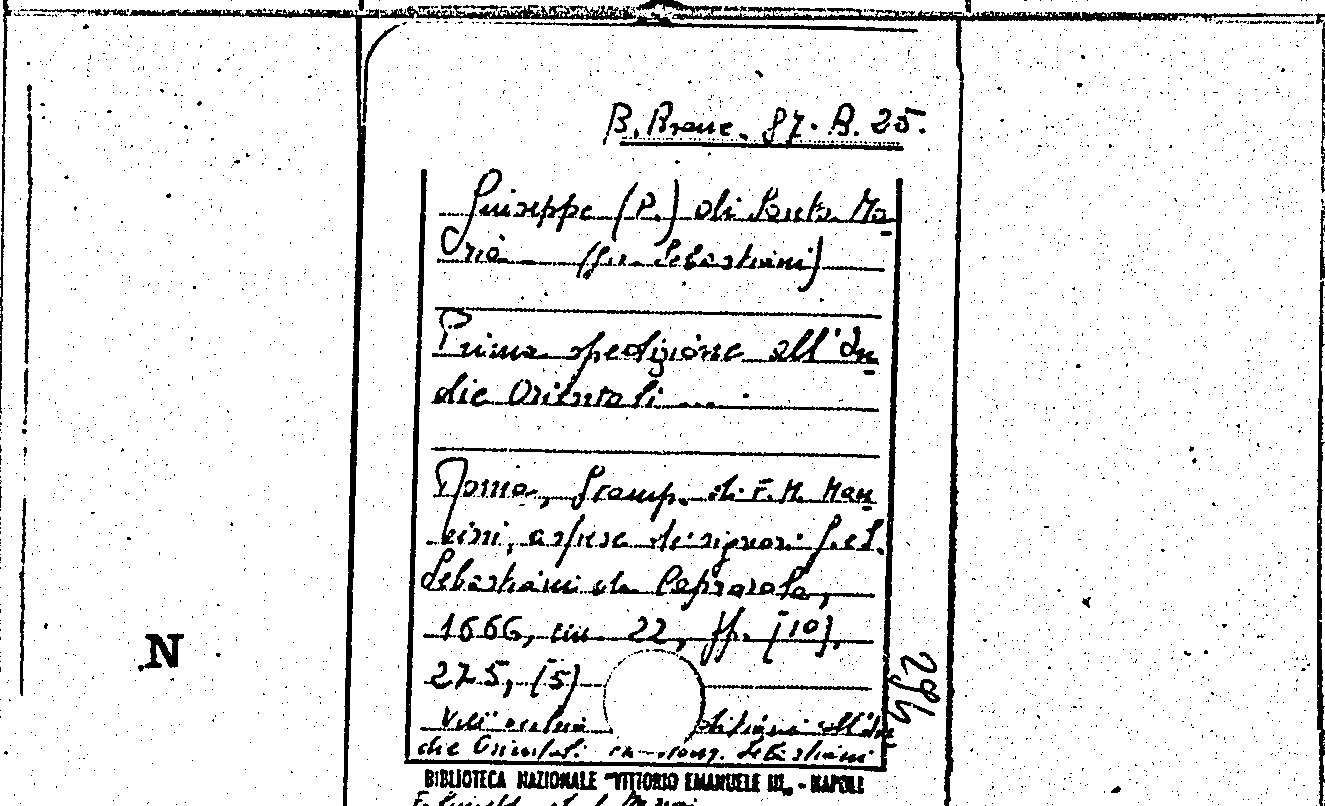 B. Branc. 87. B. 25.
Giuseppe (P.) di Santa Ma
ria (Gir. Sebastiani)
Prima spedizione all'In
die Orientali ...
Roma, Stamp. di F. M. Man
cini, a spese dei signori G. e S.
Sebastiani da Caprarola,
1666, cm. 22, ff. [10],
275, (5)
all'In
die Orientali Sebastiani
294
N
BIBLIOTECA NAZIONALE "VITTORIO EMANUELE III„ - NAPOLI